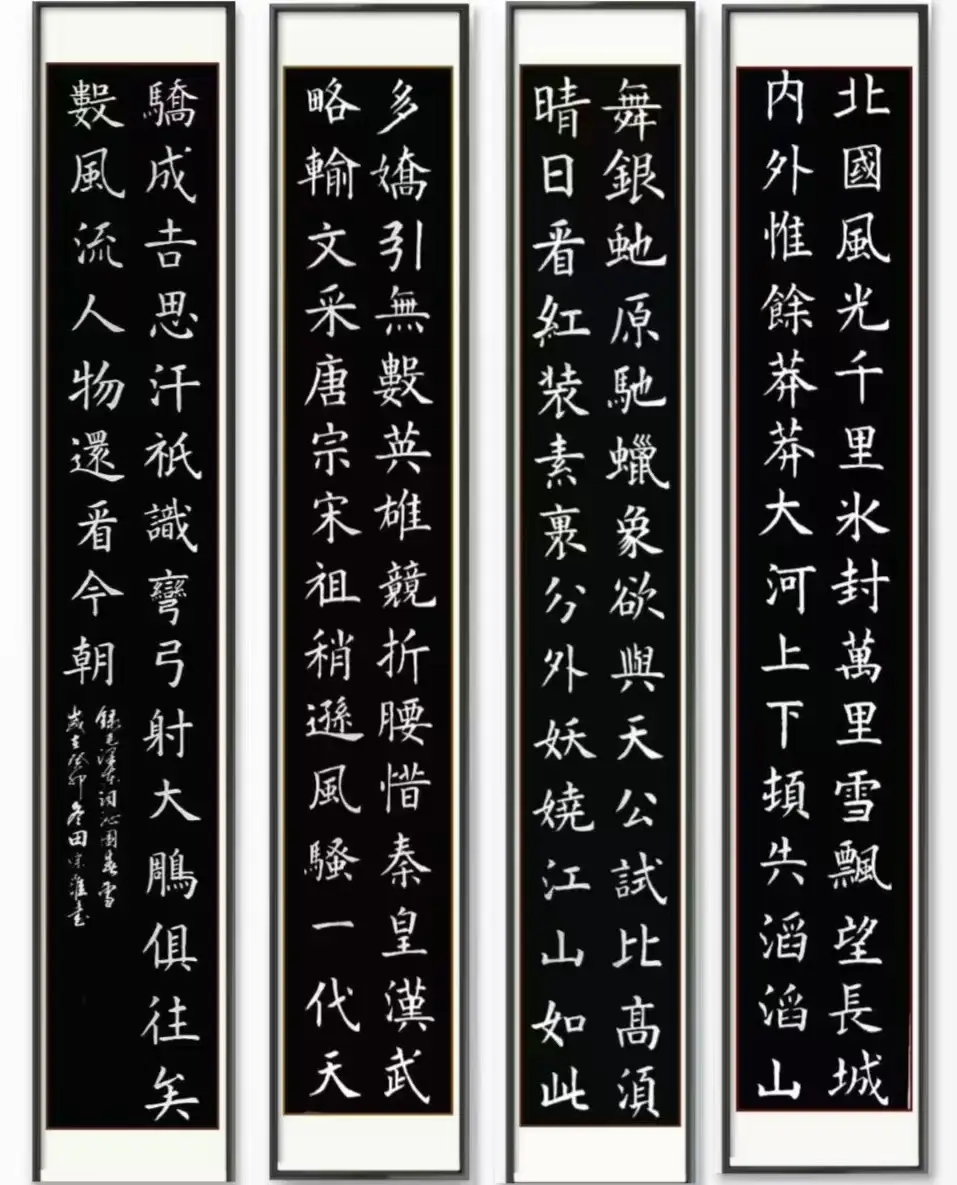 北國風光千里氷封萬里雪飄望長城
内外惟餘莽莽大河上下頓失滔滔山
舞銀虵原馳蠟象欲與天公試比髙湏
晴日看紅装素裹分外妖嬈江山如此
多嬌引無數英雄競折腰惜秦皇漢武
略輸文采唐宗宋祖稍遜風騷一代天
驕成吉思汗祇識彎弓射大鵰俱往矣
數風流人物還看今朝
録毛澤東詞沁園春雪
歲在癸卯冬田宗書